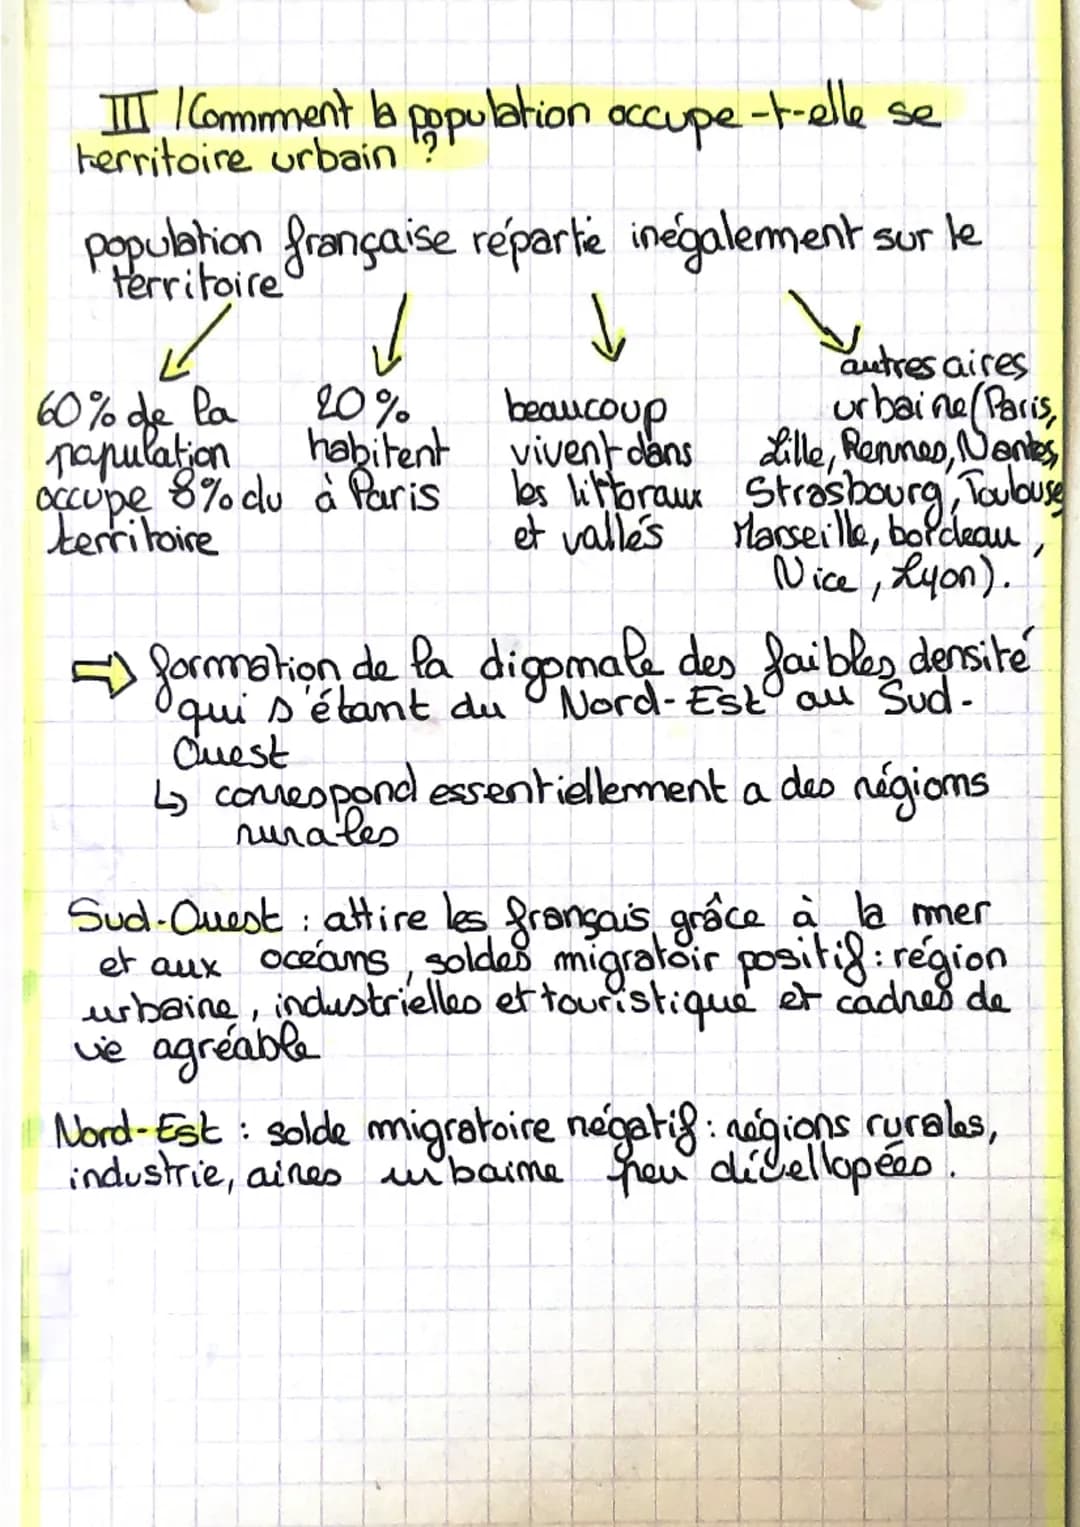 III / Commment la population occupe-t-elle se
territoire urbain ?
population française répartie inégalement sur le
territoire
60% de la
population
occupe 8% du
territoire
20%
habitent
à Paris
beaucoup
vivent dans
les littoraux
et vallés
autres aires
urbaine (Paris,
Lille, Rennes, Nantes,
Strasbourg, Toulouse
Marseille, bordeau,
Nice, Lyon).
⇨ formation de la digomale des faibles densité
qui s'étant du Nord-Est au Sud-
Ouest
↳ correspond essentiellement a des régions
rurales
Sud-Ouest : attire les français grâce à la mer
et aux océans, soldes migratoir positif : région
urbaine, industrielles et touristique et cadres de
vie agréable
Nord-Est : solde migratoire négatif : régions rurales,
industrie, aires urbaine peu dévellopées.